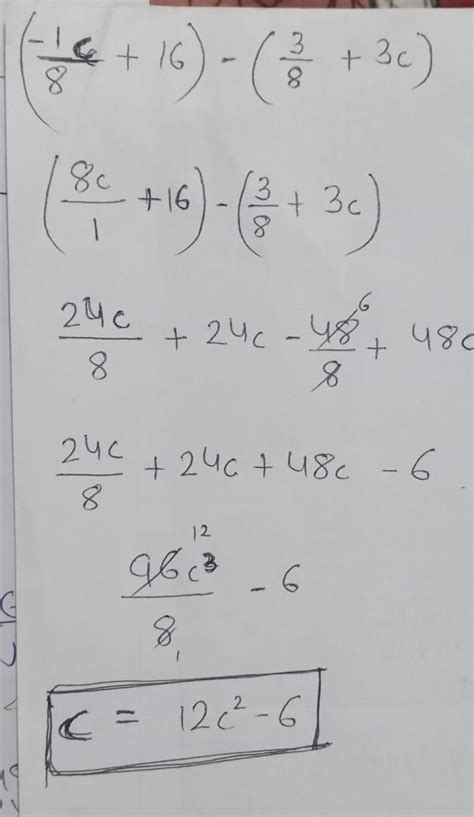 (-1c/8 + 16) - (3/8 + 3c)
(8c/1 + 16) - (3/8 + 3c)
24c/8 + 24c - 48/8 6 + 48c
24c/8 + 24c + 48c - 6
12
96c³/8 - 6
1
c = 12c² - 6